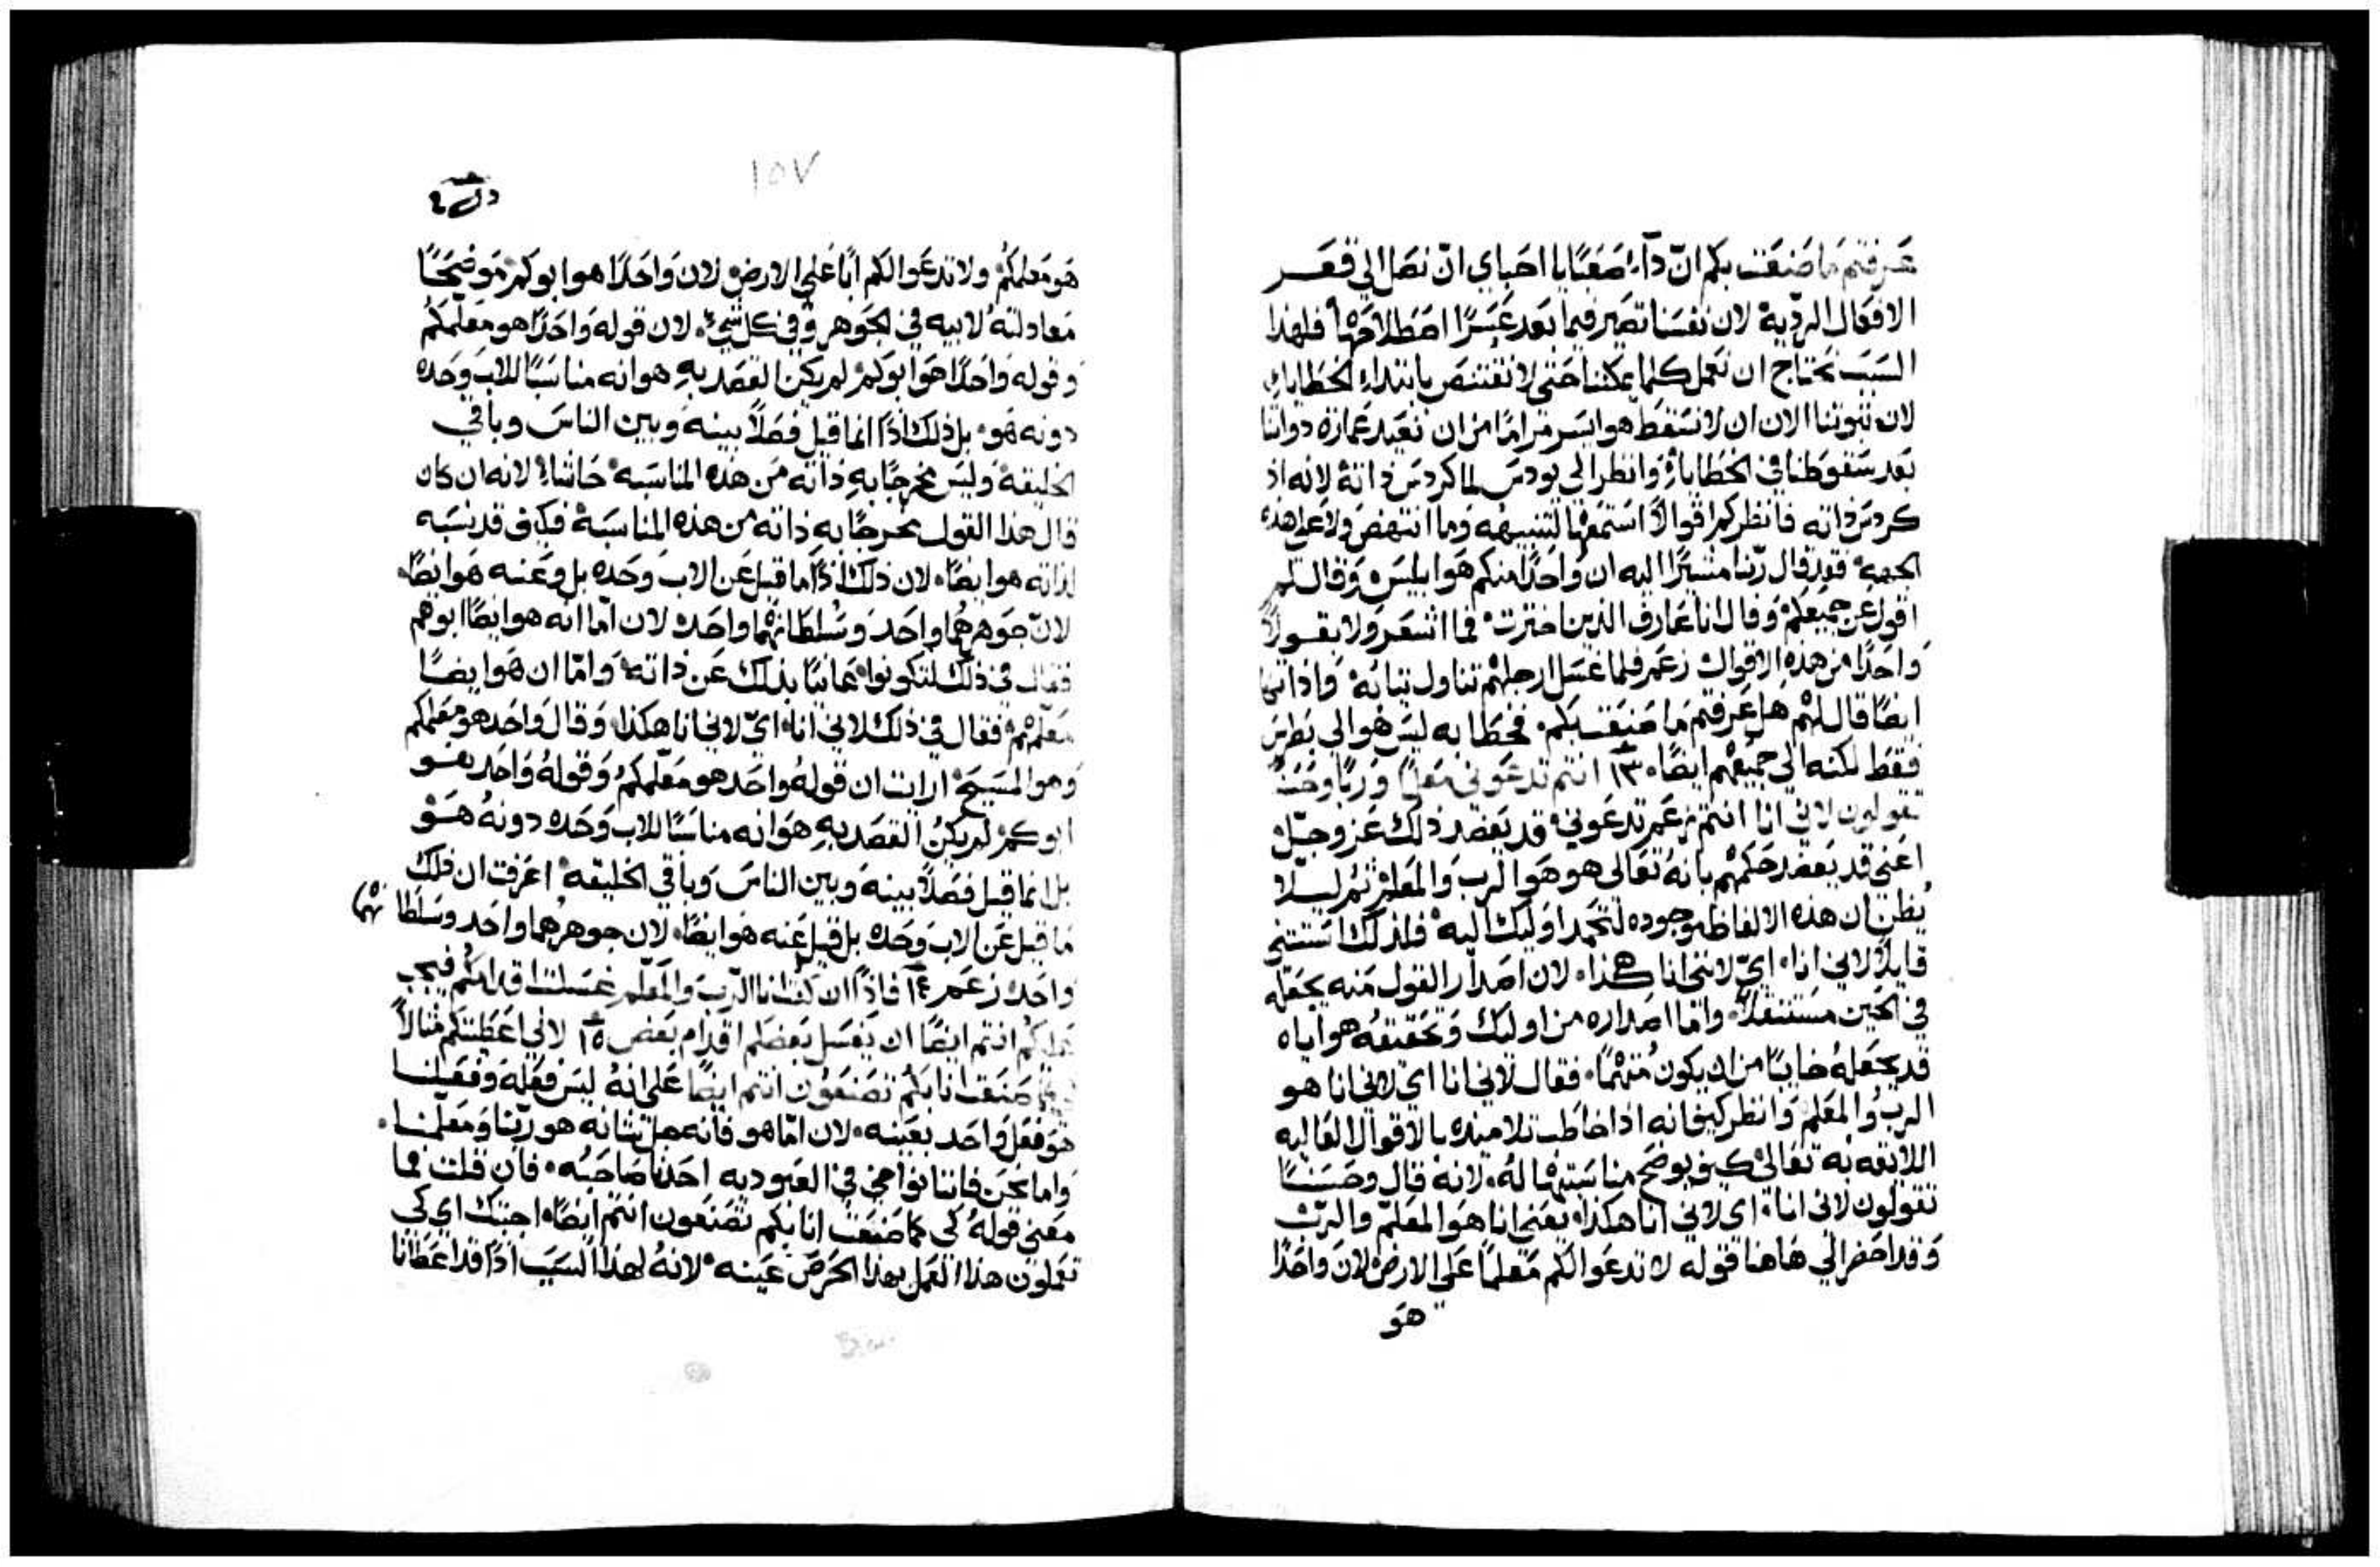 عرفتم ما صنعت بكم ان دآء صعبًا يا احباي ان نصل الي قعر
الافعال الرديه لان نفسنا تصير فيما بعد عسرًا اصطلاحها فلهذا
السبب نحتاج ان نعمل كلما يمكننا حتى لا نقتنص بابتداء الخطايا
لان ثبوتنا الان ان لا نسقط هو ايسر مرامًا من ان نعيد عمارة دواتنا
بعد سقوطنا في الخطايا وانظر الي يودس لما كردس ذاته لانه اذ
كردس ذاته فانظر كم اقوالًا استمعها لتنبيهه وما انتهض ولا على هذه
الجهه فقد قال ربنا مشيرًا اليه ان واحدًا منكم هو ابليس وقال لم
اقول عن جميعكم وقال انا عارف الذين اخترت فما اشعر ولا بقول
واحدًا من هذه الاقوال زعم فلما غسل ارجلهم تناول ثيابه واذ اتكا
ايضًا قال لهم هل عرفتم ما صنعت بكم فخطابه ليس هو الي بطرس
فقط لكنه الي جميعهم ايضًا ١٣ انتم تدعوني معلمًا وربًا وحسنًا
تقولون لاني انا انتم زعم تدعوني قد يعضد ذلك عز وجل
اعني قد يعضد حكمهم بانه تعالى هو هو الرب والمعلم ثم ليلا
يظن ان هذه الالفاظ موجوده لتحمد اوليك اليه فلذلك استثنى
قايلًا لاني انا اي لانني انا هكذا لان اصدار القول منه يجعله
في الحين مستثقلًا واما اصداره من اوليك وتحقيقه هو اياه
قد يجعله خايبًا من ان يكون متهمًا فقال لاني انا اي لاني انا هو
الرب والمعلم وانظر كيف انه اذا خاطب تلاميذه بالاقوال العاليه
اللايقه به تعالى كيف يوضح مناسبتها له لانه قال وحسنًا
تقولون لاني انا اي لاني انا هكذا يعني انا هو المعلم والرب
وقد احضر الي هاهنا قوله لا تدعوا لكم معلمًا على الارض لان واحدًا
هو
١٥٧
هو معلمكم ولا تدعوا لكم ابًا على الارض لان واحدًا هو ابوكم موضحًا
معادلته لابيه في الجوهر وفي كل شي لان قوله واحدًا هو معلمكم
وقوله واحدًا هو ابوكم لم يكن القصد به هو انه مناسبًا للاب وحده
دونه هو بل ذلك اذًا انما قيل فصلًا بينه وبين الناس وباقي
الخليقه وليس مخرجًا به ذاته من هذه المناسبه حاشا لانه ان كان
قال هذا القول مخرجًا به ذاته من هذه المناسبة فكيف قد نسبه
لذاته هو ايضًا لان ذلك اذًا ما قيل عن الاب وحده بل وعنه هو ايضًا
لان جوهرهما واحد وسلطانهما واحده لان اما انه هو ايضًا ابوهم
فقال في ذلك لتكونوا عانيًا بذلك عن ذاته واما ان هو ايضًا
معلمهم فقال في ذلك لاني انا اي لاني انا هكذا وقال واحد هو معلمكم
وهو المسيح ارايت ان قوله واحد هو معلمكم وقوله واحد هو
ابوكم لم يكن القصد به هو انه مناسبًا للاب وحده دونه هو
بل انما قيل فصلًا بينه وبين الناس وباقي الخليقه اعرفت ان ذلك
ما قيل عن الاب وحده بل قيل عنه هو ايضًا لان جوهرهما واحد وسلطانهما
واحده زعم ١٤ فاذًا ان كنت انا الرب والمعلم غسلت اقدامكم فيجب
عليكم انتم ايضًا ان يغسل بعضكم اقدام بعض ١٥ لاني اعطيتكم مثالًا
كما صنعت انا بكم تصنعون انتم ايضًا على انه ليس فعله وفعلنا
هو فعل واحد بعينه لان اما هو فانه هل شانه هو ربنا ومعلمنا
واما نحن فاننا نواخي في العبوديه احدنا صاحبه فان قلت فما
معنى قوله كي كما صنعت انا بكم تصنعون انتم ايضًا اجبتك اي كي
تعملون هذا العمل بهذا الحرص عينه لانه لهذا السبب اذًا قد اعطانا